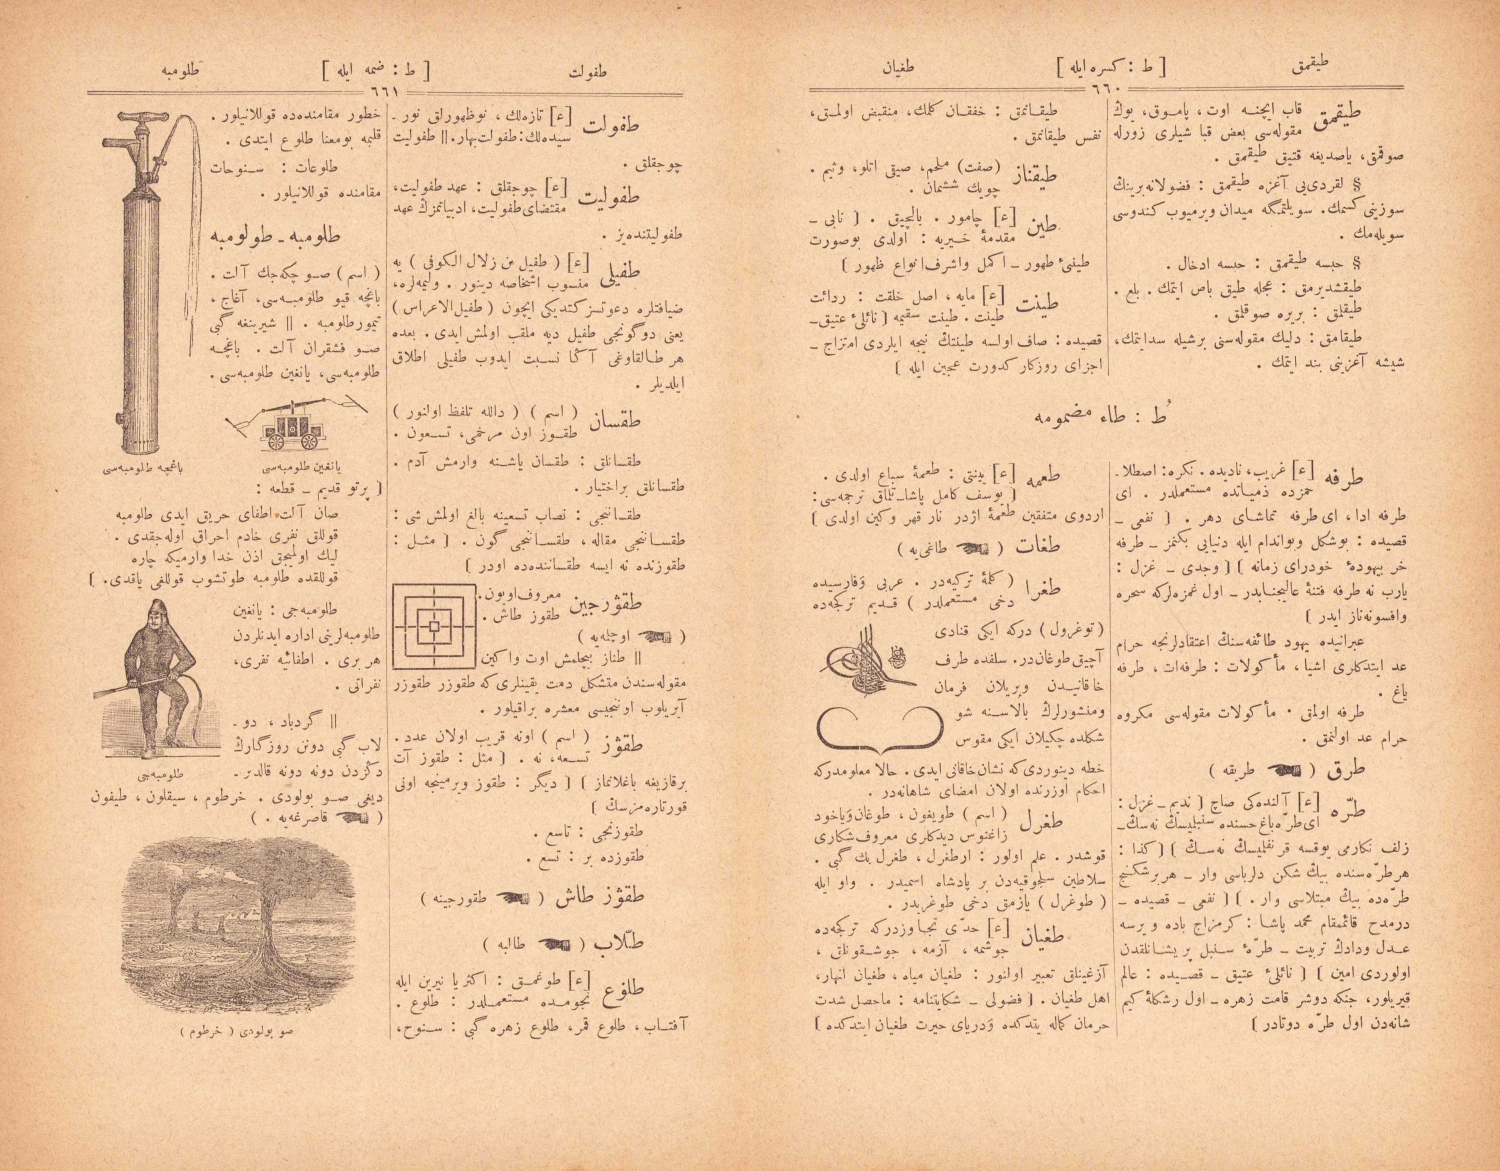 طیقمق
[ ط : كسره ایله ]
طغیان
٦٦٠
طیقمق
قاب ایچنه اوت، پاموق، یوڭ
مقوله‌سی بعض قبا شیلری زورله
صوقمق، یاصدیغه قتیق طیقمق .
§ لقردی‌یی آغزه طیقمق : فضولانه برینڭ
سوزینی كسمك. سویلتمكه میدان ویرمیوب كندوسی
سویله‌مك .
§ حبسه طیقمق : حبسه ادخال .
طیقشدیرمق : عجله طیق باص ایتمك . بلع .
طیقلق : بریره صوقلق .
طیقامق : دلیك مقوله‌سنی برشیله سدایتمك،
شیشه آغزینی بند ایتمك .
طیقانمق : خفقان كلمك، منقبض اولمق،
نفس طیقانمق .
طیقناز
(صفت) ملحم، صیق اتلو، وثیم .
چویك ششمان .
طین
[ع] چامور . بالچیق . ( نابی ـ
مقدمهٔ خیریه : اولدی بوصورت
طینیٔ طهور ـ اكمل واشرف انواع ظهور )
طینت
[ع] مایه، اصل خلقت : ردائت
طینت . طینت سقیمه ( نائلیٔ عتیق ـ
قصیده : صاف اولسه طینتڭ نیجه ایلردی امتزاج ـ
اجزای روزكار كدورت عجین ایله )
طُ : طاء مضمومه
طرفه
[ع] غریب، نادیده . نكره : اصطلا.
حمزده ذمیاتده مستعملدر . ای
طرفه ادا، ای طرفه تماشای دهر . ( نفعی ـ
قصیده : بوشكل وبواندام ایله دنیایی بكنمز ـ طرفه
خر بیهودهٔ خودرای زمانه ) ( وجدی ـ غزل :
یارب نه طرفه فتنهٔ عالیجنابدر ـ اول غمزه‌لركه سحره
وافسونه‌ناز ایدر )
عبرانیده یهود طائفه‌سنڭ اعتقادلرنجه حرام
عد ایتدكلری اشیا، مأكولات : طرفه‌ات، طرفه
یاغ .
طرفه اولمق . مأكولات مقوله‌سی مكروه
حرام عد اولنمق .
طرق ( ☚ طریقه )
طرّه
[ع] آلنده‌كی صاچ ( ندیم ـ غزل :
ای طرّه باغ حسنده سنبلیسڭ نه‌سڭ ـ
زلف نكارمی یوقسه قرنفلیسڭ نه‌سڭ ) ( كذا :
هر طرّه‌سنده بیڭ شكن دلرباسی وار ـ هر برشكنج
طرّه‌ده بیڭ مبتلاسی وار . ) ( نفعی ـ قصیده ـ
درمدح قائممقام محمد پاشا : كرمزاج باده ویرسه
عدل ودادڭ تربیت ـ طرّهٔ سنبل پریشانلقدن
اولوردی امین ) ( نائلیٔ عتیق ـ قصیده : عالم
قیریلور، جنكه دوشر قامت زهره ـ اول رشكله كیم
شانه‌دن اول طرّه دوتادر )
طعمه
[ع] یینتی : طعمهٔ سباع اولدی .
( یوسف كامل پاشا ـ تلماق ترجمه‌سی :
اردوی متفقین طعمهٔ اژدر نار قهر وكین اولدی )
طغات ( ☚ طاغی‌یه )
طغرا
( كلهٔ تركیه‌در . عربی وفارسیده
دخی مستعملدر ) قدیم تركجه‌ده
(توغرول) دركه ایكی قنادی
آچیق طوغان‌در. سلفده طرف
خاقانیدن ویریلان فرمان
ومنشورلرڭ بالاسنه شو
شكلده چكیلان ایكی مقوس
خطه دینوردی‌كه نشان خاقانی ایدی . حالا معلومدركه
احكام اوزرنده اولان امضای شاهانه‌در .
طغرل
( اسم ) طویغون، طوغان ویاخود
زاغنوس دیدكلری معروف شكاری
قوشدر . علم اولور : ارطغرل، طغرل بك گبی .
سلاطین سلجوقیه‌دن بر پادشاه اسمیدر . واو ایله
( طوغرل ) یازمق دخی طوغریدر .
طغیان
[ع] حدّی تجاوزدركه تركجه‌ده
جوشمه، آزمه، جوشقونلق،
آزغینلق تعبیر اولنور : طغیان میاه، طغیان انهار،
اهل طغیان . ( فضولی ـ شكایتنامه : ماحصل شدت
حرمان كاله یتدكده ودریای حیرت طغیان ایتدكده )
طفولت
[ ط : ضمه ایله ]
طلومبه
٦٦١
طفولت
[ع] تازه‌لك، نوظهورلق نور ـ
سیده‌لك : طفولت بهار. || طفولیت
چوجقلق .
طفولیت
[ع] چوجقلق : عهد طفولیت،
مقتضای طفولیت، ادبیاتمزڭ عهد
طفولیتنده‌یز .
طفیلی
[ع] ( طفیل من زلال الكوفی ) یه
منسوب اشخاصه دینور . ولیمه‌لره،
ضیافتلره دعوتسز كتدیكی ایچون ( طفیل الاعراس )
یعنی دوگونجی طفیل دیه ملقب اولمش ایدی . بعده
هر طالقاوغی آڭا نسبت ایدوب طفیلی اطلاق
ایلدیلر .
طقسان
( اسم ) ( دالله تلفظ اولنور )
طقوز اون مرخمی، تسعون .
طقسانلق : طقسان یاشنه وارمش آدم .
طقسانلق براختیار .
طقسانجی : نصاب تسعینه بالغ اولمش شی :
طقسانجی مقاله، طقسانجی گون . ( مثل :
طقوزنده نه ایسه طقساننده‌ده اودر )
طقوّرجین
معروف اویون .
طقوز طاش .
( ☚ اوچله‌یه )
|| طناز بیچلمش اوت واكین
مقوله‌سندن متشكل دمت یغینلری‌كه طقوزر طقوزر
آیریلوب اوننجیسی معشره براقیلور .
طقوّز
( اسم ) اونه قریب اولان عدد .
تسعه، نه . ( مثل : طقوز آت
برقازیغه باغلانماز ) ( دیگر : طقوز ویرمینجه اونی
قورتاره‌مزسڭ )
طقوزنجی : تاسع .
طقوزده بر : تسع .
طقوّز طاش ( ☚ طقورجینه )
طلّاب ( ☚ طالبه )
طلوع
[ع] طوغمق : اكثریا نیرین ایله
نجومده مستعملدر : طلوع .
آفتاب، طلوع قمر، طلوع زهره گبی : سنوح،
خطور مقامنده‌ده قوللانیلور .
قلبمه بومعنا طلوع ایتدی .
طلوعات : سنوحات
مقامنده قوللانیلور .
طلومبه ـ طولومبه
( اسم ) صو چكه‌جك آلت .
باغچه قیو طلومبه‌سی، آغاج .
تیمورطلومبه . || شیرینغه گبی
صو فشقران آلت . باغچه
طلومبه‌سی، یانغین طلومبه‌سی .
یانغین طلومبه‌سی
باغچه طلومبه‌سی
( پرتو قدیم ـ قطعه :
صان آلت اطفای حریق ایدی طلومبه
قوللق نفری خادم احراق اوله‌جقدی .
لیك اولمیجق اذن خدا وارمیكه چاره
قوللقده طلومبه طوتشوب قوللغی یاقدی . )
طلومبه‌جی : یانغین
طلومبه‌لرینی اداره ایدنلردن
هر بری . اطفائیه نفری،
نفراتی .
|| گردباد، دو ـ
لاب گبی دونن روزگارڭ
دڭزدن دونه دونه قالدیر ـ
دیغی صو بولودی . خرطوم، سیقلون، طیفون
( ☚ قاصرغه‌یه . )
طلومبه‌جی
صو بولودی ( خرطوم )